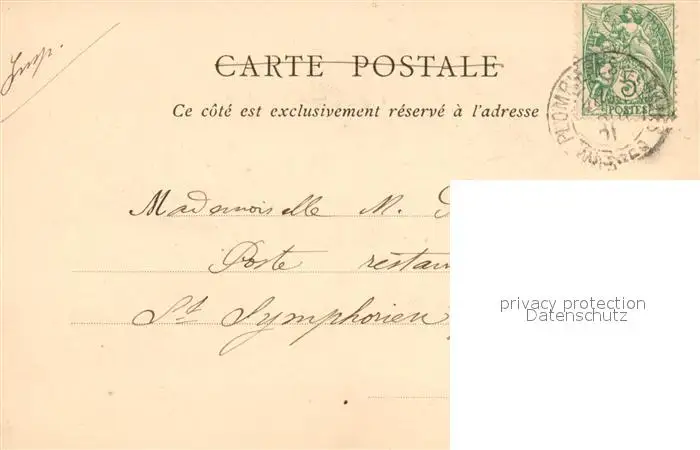 Imp.
CARTE POSTALE
Ce côté est exclusivement réservé à l'adresse
5
POSTES
Mademoiselle M.
Poste restan
St Symphorien
privacy protection
Datenschutz